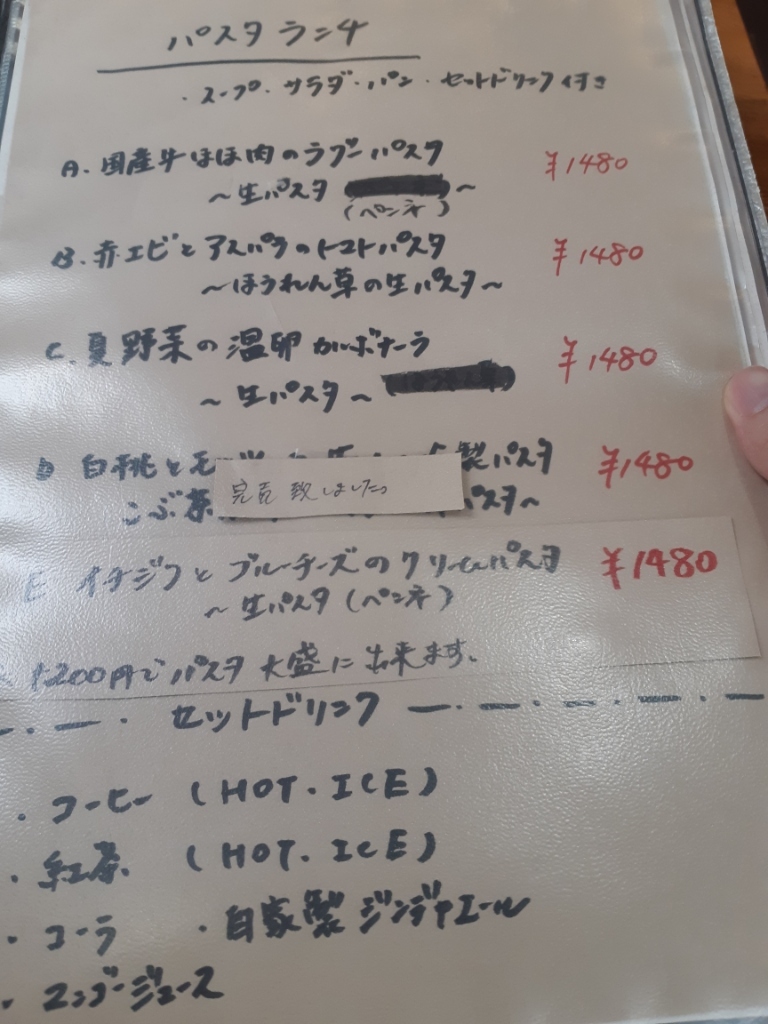 パスタランチ
・スープ・サラダ・パン・セットドリンク付き
A. 国産牛ほほ肉のラグーパスタ ¥1480
～生パスタ ～
(ペンネ)
B. 赤エビとアスパラのトマトパスタ ¥1480
～ほうれん草の生パスタ～
C. 夏野菜の温卵カルボナーラ ¥1480
～生パスタ～
D 白桃とモッツ 製パスタ ¥1480
完売致しました
こぶ茶 パスタ～
E イチジクとブルーチーズのクリームパスタ ¥1480
～生パスタ(ペンネ)
200円でパスタ大盛に出来ます。
セットドリンク
・コーヒー (HOT・ICE)
・紅茶 (HOT・ICE)
・コーラ ・自家製ジンジャエール
・マンゴージュース